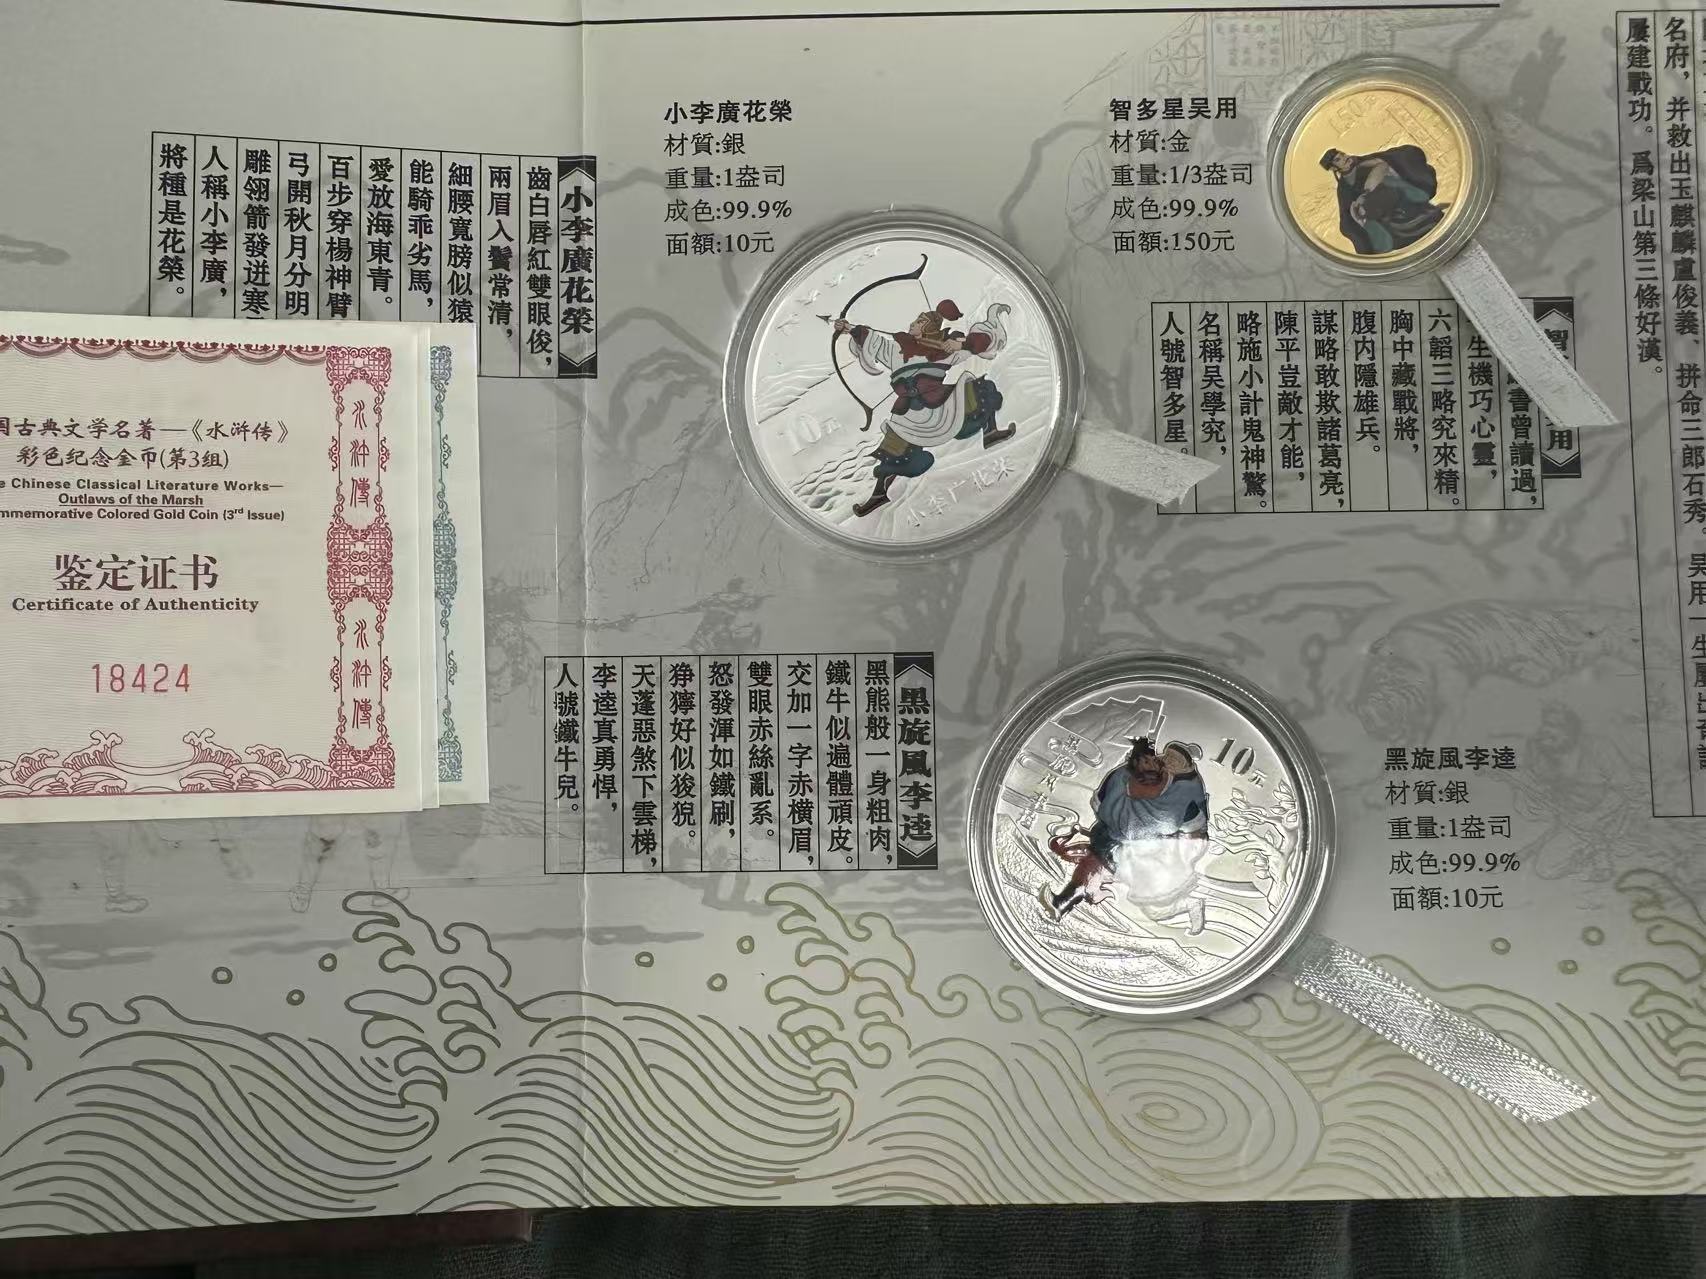 小李廣花榮
材質:銀
重量:1盎司
成色:99.9%
面額:10元
智多星吴用
材質:金
重量:1/3盎司
成色:99.9%
面額:150元
小李廣花榮
齒白唇紅雙眼俊，
兩眉入鬢常清，
細腰寬膀似猿
能騎乖劣馬，
愛放海東青。
百步穿楊神臂
弓開秋月分明
雕翎箭發迸寒
人稱小李廣，
將種是花榮。
10元
小李广花荣
150元
書曾讀過，
生機巧心靈，
六韜三略究來精。
胸中藏戰將，
腹内隱雄兵。
謀略敢欺諸葛亮，
陳平豈敵才能，
略施小計鬼神驚。
名稱吴學究，
人號智多星。
名府，并救出玉麒麟盧俊義、拼命三郎石秀。吴用一生
屢建戰功。爲梁山第三條好漢。
国古典文学名著—《水浒传》
彩色纪念金币(第3组)
e Chinese Classical Literature Works—
Outlaws of the Marsh
mmemorative Colored Gold Coin (3rd Issue)
鉴定证书
Certificate of Authenticity
18424
水浒傳
水浒傳
黑旋風李逵
黑熊般一身粗肉，
鐵牛似遍體頑皮。
交加一字赤橫眉，
雙眼赤絲亂系。
怒發渾如鐵刷，
猙獰好似狻猊。
天蓬惡煞下雲梯，
李逵真勇悍，
人號鐵牛兒。
10元
黑旋風李逵
材質:銀
重量:1盎司
成色:99.9%
面額:10元